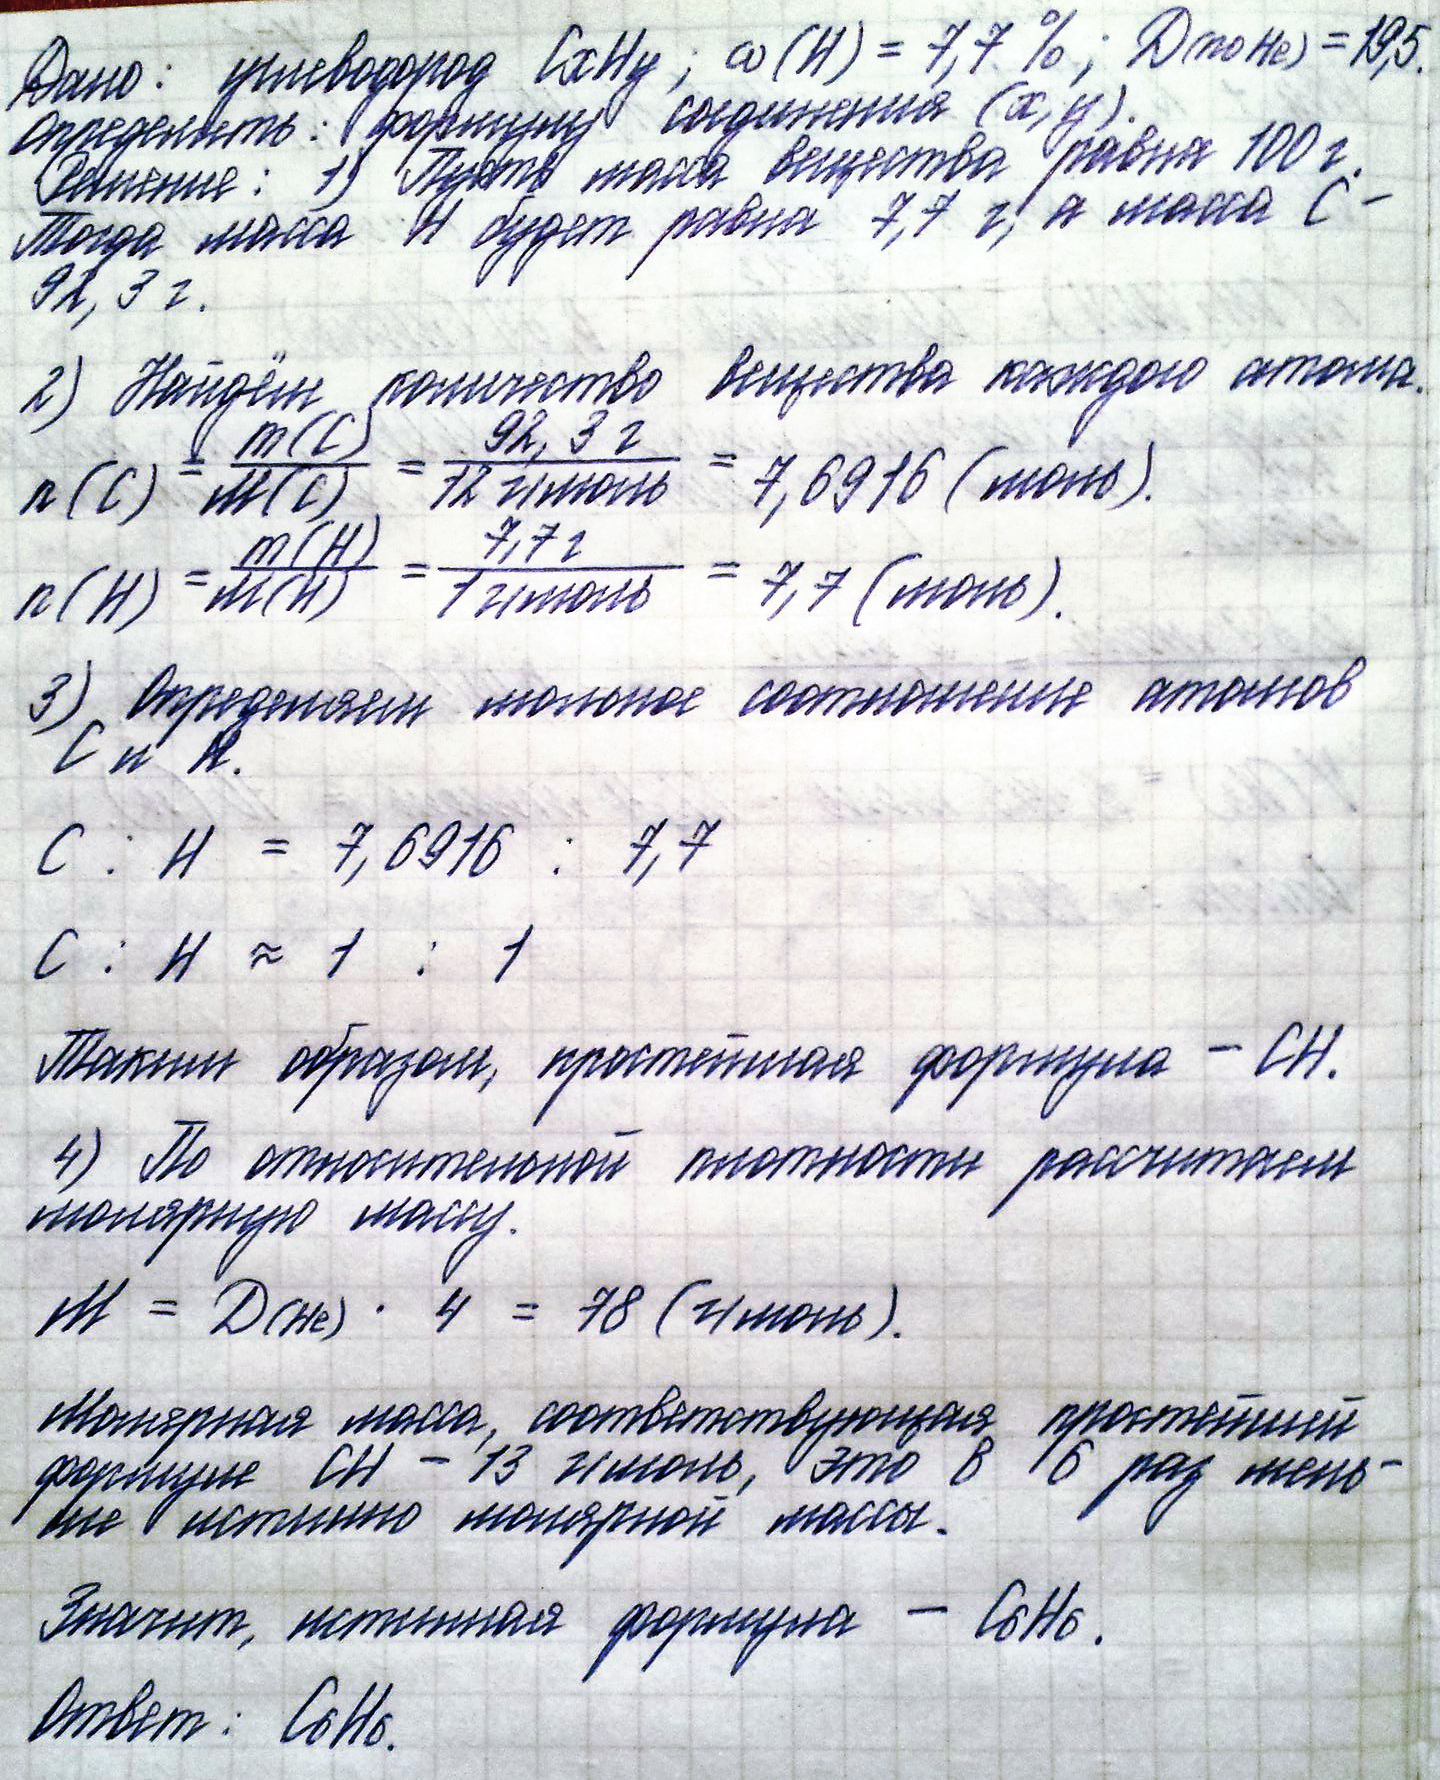 Дано: углеводород CxHy; ω(H) = 7,7 %; D(по He) = 19,5.
Определить: формулу соединения (x, y).
Решение: 1) Пусть масса вещества равна 100 г.
Тогда масса H будет равна 7,7 г, а масса C –
92,3 г.
2) Найдём количество вещества каждого атома.
n(C) = m(C)/M(C) = 92,3 г/12 г/моль = 7,6916 (моль).
n(H) = m(H)/M(H) = 7,7 г/1 г/моль = 7,7 (моль).
3) Определяем мольное соотношение атомов
C и H.
C : H = 7,6916 : 7,7
C : H ≈ 1 : 1
Таким образом, простейшая формула – CH.
4) По относительной плотности рассчитаем
молярную массу.
M = D(He) · 4 = 78 (г/моль).
Молярная масса, соответствующая простейшей
формуле CH – 13 г/моль, это в 6 раз мень-
ше истинно молярной массы.
Значит, истинная формула – C6H6.
Ответ: C6H6.